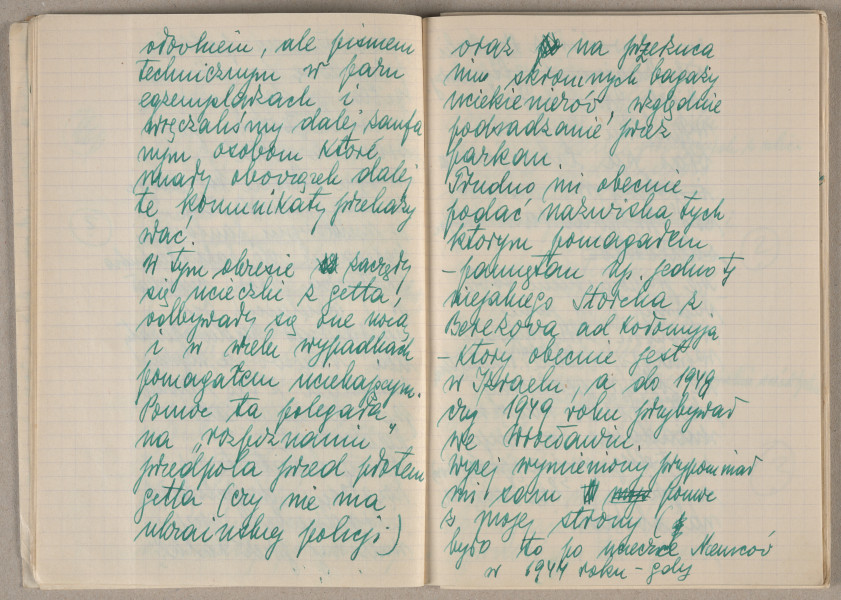 odbolnem, ale pismem
technicznym w paru
egzemplarzach i
wręczaliśmy dalej zaufa
nym osobom które
miały obowiązek dalej
te komunikaty przekazy
wać.
W tym okresie zaczęły
się ucieczki z getta,
odbywały się one nocą
i w wielu wypadkach
pomagałem uciekającym.
Pomoc ta polegała
na „rozpoznaniu"
przedpola przed płotem
getta (czy nie ma
ukraińskiej policji)
oraz na przerzuca
niu skromnych bagaży
uciekinierów, względnie
podsadzanie przez
parkan.
Trudno mi obecnie
podać nazwiska tych
którym pomagałem
- pamiętam np. jedno ty
niejakiego Storcha z
Berezova ad Kołomyja
- który obecnie jest
w Izraelu, a do 1949
czy 1949 roku przybywał
we Wrocławiu.
Wyżej wymieniony przypominał
mi sam pomoc
z mojej strony (
było to po ucieczce Niemców
w 1944 roku - gdy